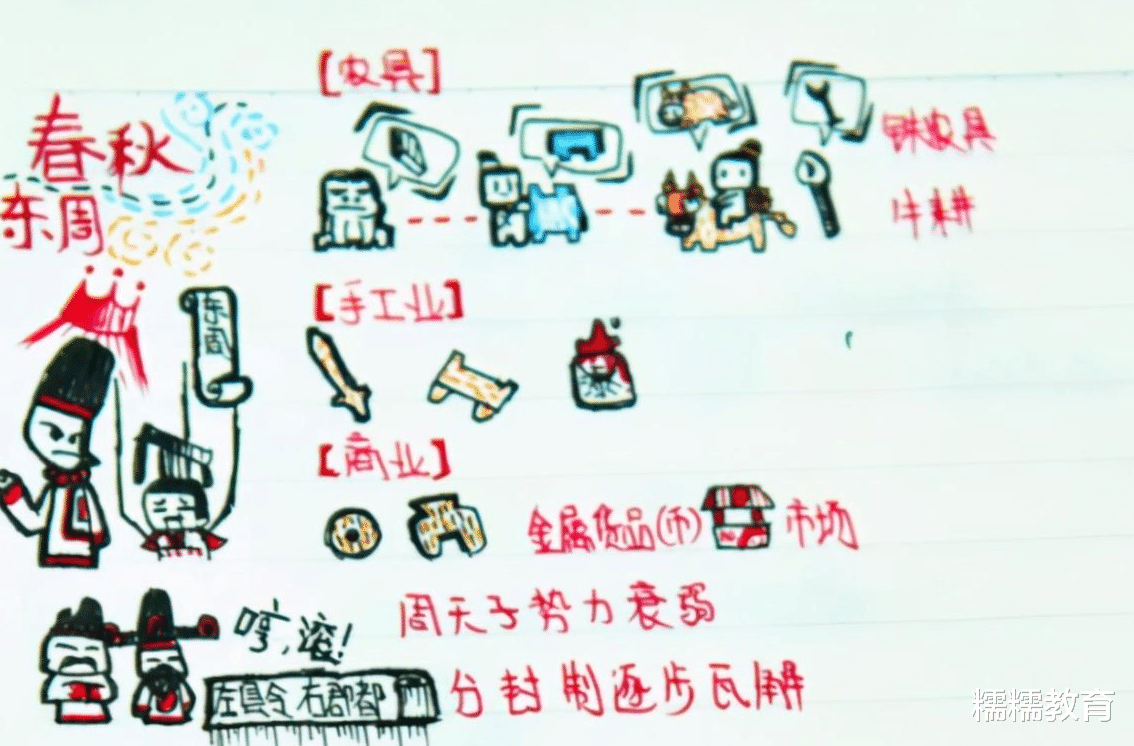 【农具】
春秋
东周
铁农具
牛耕
东周
【手工业】
【商业】
金属货品(币)
市场
哼,滚!
周天子势力衰弱
左县令 右郡都
分封制逐步瓦解
糯糯教育